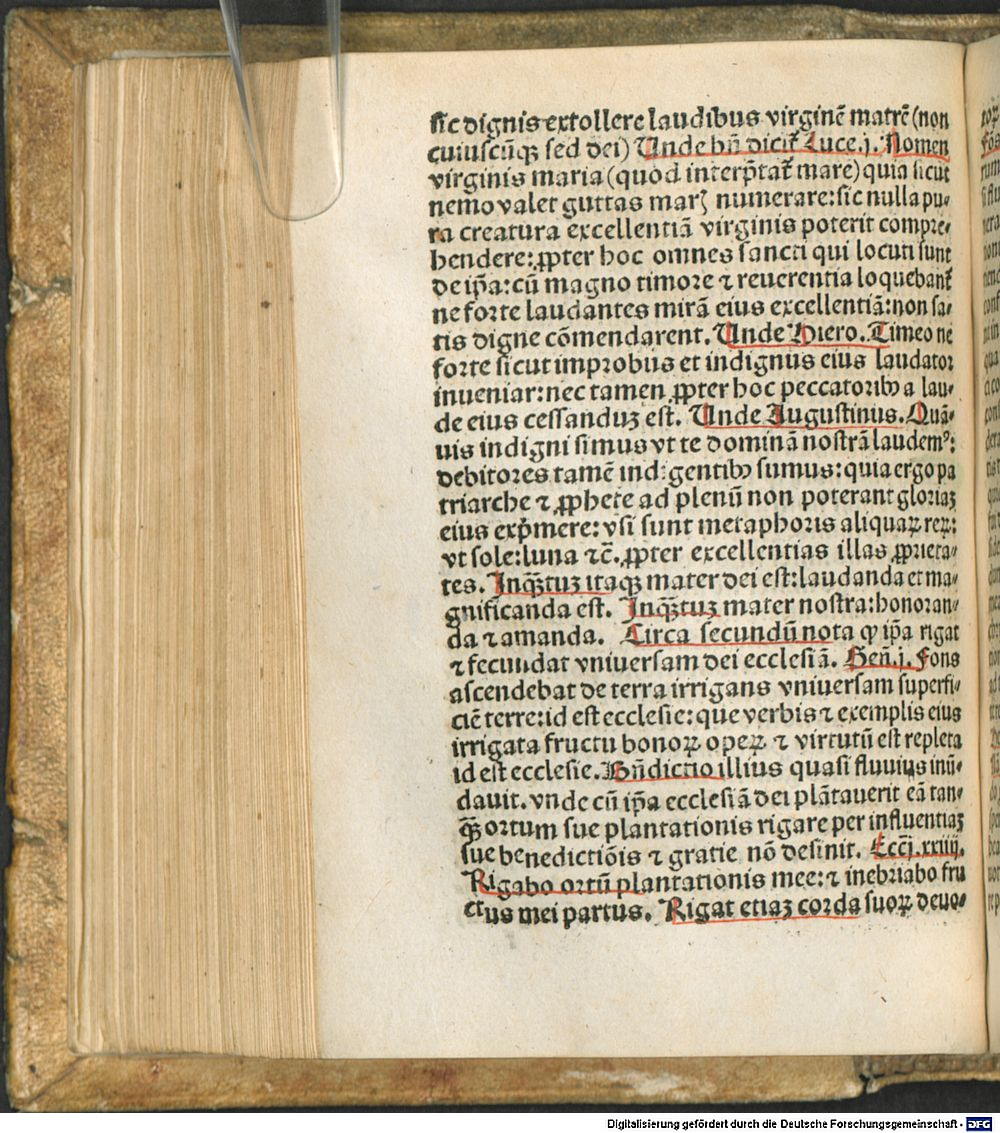 sic dignis extollere laudibus virginē matrē (non
cuiuscūqꝫ sed dei) Unde bn̄ dicit᷑ Luce.j. Nomen
virginis maria (quod interp̄tat᷑ mare) quia sicut
nemo valet guttas marꝭ numerare: sic nulla pu-
ra creatura excellentiā virginis poterit compre-
hendere: ꝓpter hoc omnes sancti qui locuti sunt
de ip̄a: cū magno timore ⁊ reuerentia loquebant᷑
ne forte laudantes mirā eius excellentiā: non sa-
tis digne cōmendarent. Unde Hiero. Timeo ne
forte sicut improbus et indignus eius laudator
inueniar: nec tamen ꝓpter hoc peccatoribꝰ a lau-
de eius cessanduꝫ est. Unde Augustinus. Quā-
uis indigni simus vt te dominā nostrā laudemꝰ:
debitores tamē indigentibꝰ sumus: quia ergo pa
triarche ⁊ ꝓphete ad plenū non poterant gloriaꝫ
eius exp̄mere: vsi sunt metaphoris aliquaꝝ reꝝ:
vt sole: luna ⁊c̄. ꝓpter excellentias illas ꝓprieta-
tes. Inqꝫ̄tuꝫ itaqꝫ mater dei est: laudanda et ma-
gnificanda est. Inqꝫ̄tuꝫ mater nostra: honoran-
da ⁊ amanda. Circa secundū nota ꝙ ip̄a rigat
⁊ fecundat vniuersam dei ecclesiā. Gen̄.j. Fons
ascendebat de terra irrigans vniuersam superfi-
ciē terre: id est ecclesie: que verbis ⁊ exemplis eius
irrigata fructu bonoꝝ opeꝝ ⁊ virtutū est repleta
id est ecclesie. Bn̄dictio illius quasi fluuius inū-
dauit. vnde cū ip̄a ecclesiā dei plātauerit eā tan-
qꝫ̄ ortum sue plantationis rigare per influentiaꝫ
sue benedictiōis ⁊ gratie nō desinit. Ecci̅.xxiiij.
Rigabo ortū plantationis mee: ⁊ inebriabo fru
ctus mei partus. Rigat etiaꝫ corda suoꝝ deuo-
Digitalisierung gefördert durch die Deutsche Forschungsgemeinschaft - DFG